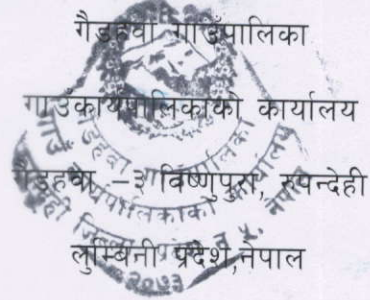 गैडहवा गाउँपालिका
गाउँकार्यपालिकाको कार्यालय
गैडहवा –३ बिष्णुपुरा, रुपन्देही
लुम्बिनी प्रदेश,नेपाल
२०७३